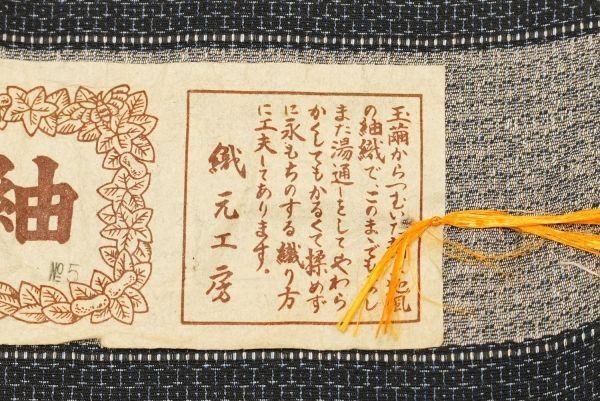 玉繭からつむいだ
地風
の紬織で、このまゝでも
また湯通しをしてやわら
かくしてもかるくて揉めず
に永もちのする織り方
に工夫してあります。
織元工房
紬
№5